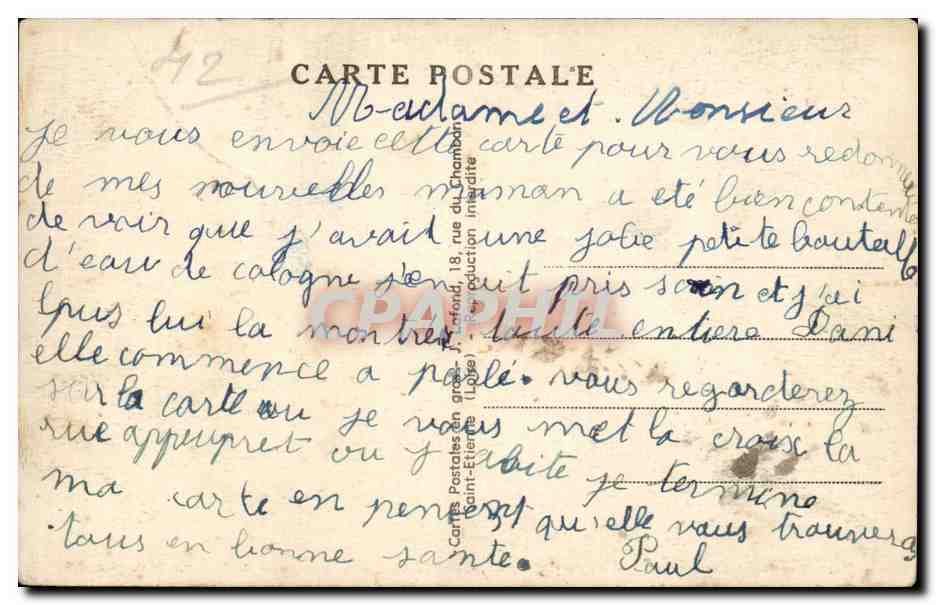 42
CARTE POSTALE
Madame et. Monsieur
je vous envoie cette carte pour vous redonner
de mes nouvelles maman a eté bien contente
de voir que j'avait une jolie petite bouteille
d'eau de cologne j'en ait pris soin et j'ai
pus lui la montrer toute entiere Dani
elle commence a parlé. vous regarderez
sur la carte ou je vous met la croix la
rue appeupret ou j'abite je termine
ma carte en pensent qu'elle vous trouvera
tous en bonne sante. Paul
Cartes Postales en gros - J. Lafond, 18, rue du Chambon
Saint-Etienne (Loire) - Reproduction interdite
CPAPHIL